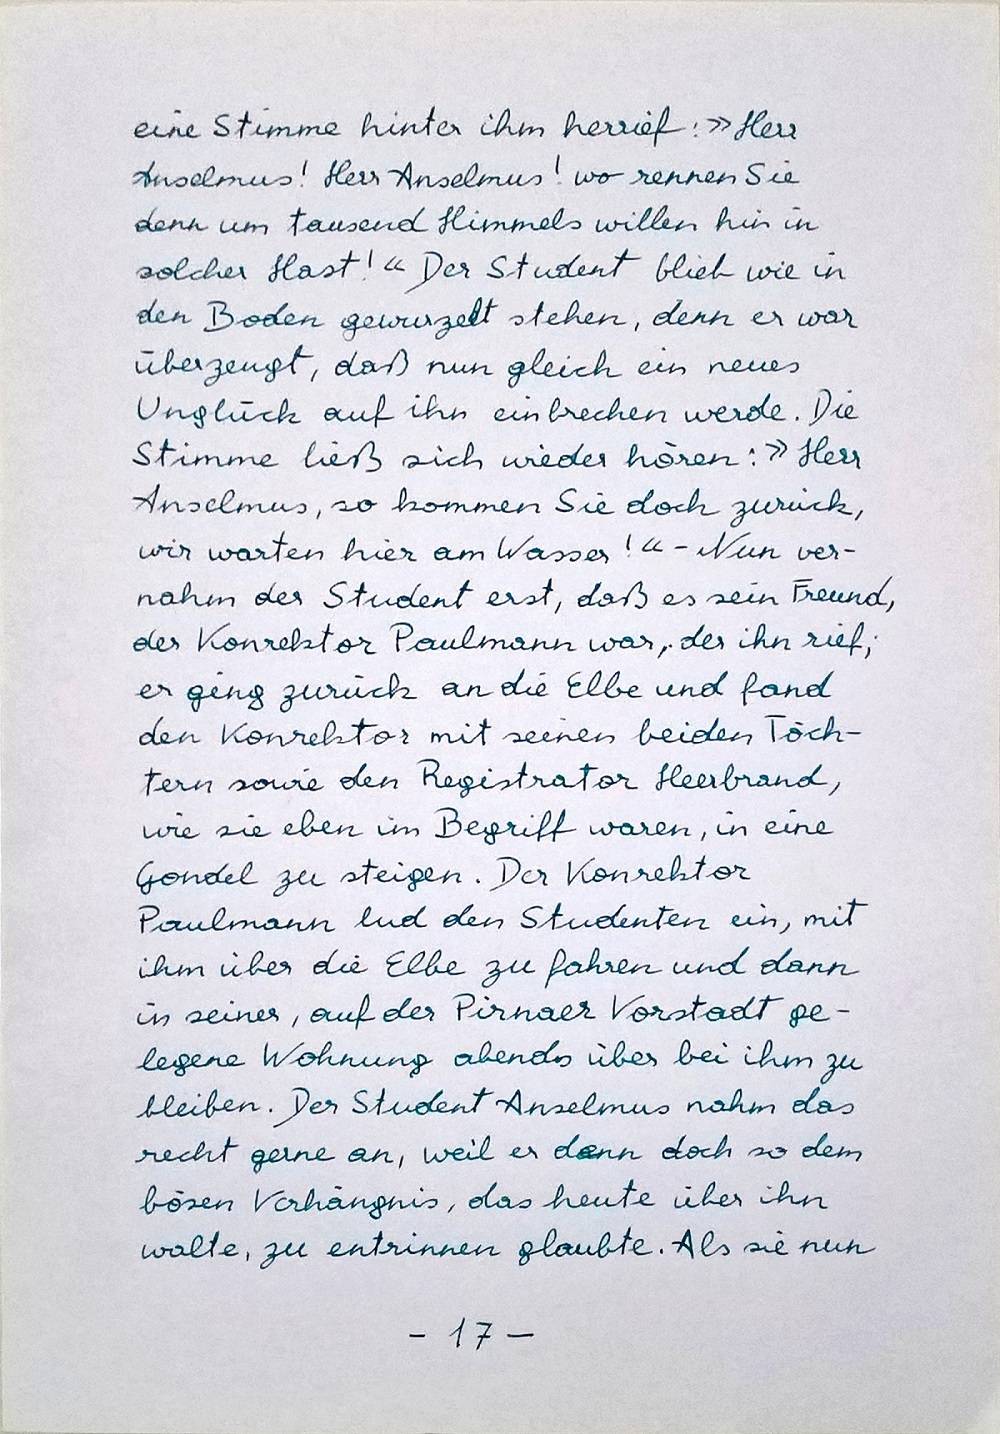 eine Stimme hinter ihm herrief: »Herr
Anselmus! Herr Anselmus! wo rennen Sie
denn um tausend Himmels willen hin in
solcher Hast!« Der Student blieb wie in
den Boden gewurzelt stehen, denn er war
überzeugt, daß nun gleich ein neues
Unglück auf ihn einbrechen werde. Die
Stimme ließ sich wieder hören: »Herr
Anselmus, so kommen Sie doch zurück,
wir warten hier am Wasser!« – Nun ver-
nahm der Student erst, daß es sein Freund,
der Konrektor Paulmann war, der ihn rief;
er ging zurück an die Elbe und fand
den Konrektor mit seinen beiden Töch-
tern sowie den Registrator Heerbrand,
wie sie eben im Begriff waren, in eine
Gondel zu steigen. Der Konrektor
Paulmann lud den Studenten ein, mit
ihm über die Elbe zu fahren und dann
in seiner, auf der Pirnaer Vorstadt ge-
legene Wohnung abends über bei ihm zu
bleiben. Der Student Anselmus nahm das
recht gerne an, weil er denn doch so dem
bösen Verhängnis, das heute über ihn
walte, zu entrinnen glaubte. Als sie nun
– 17 –